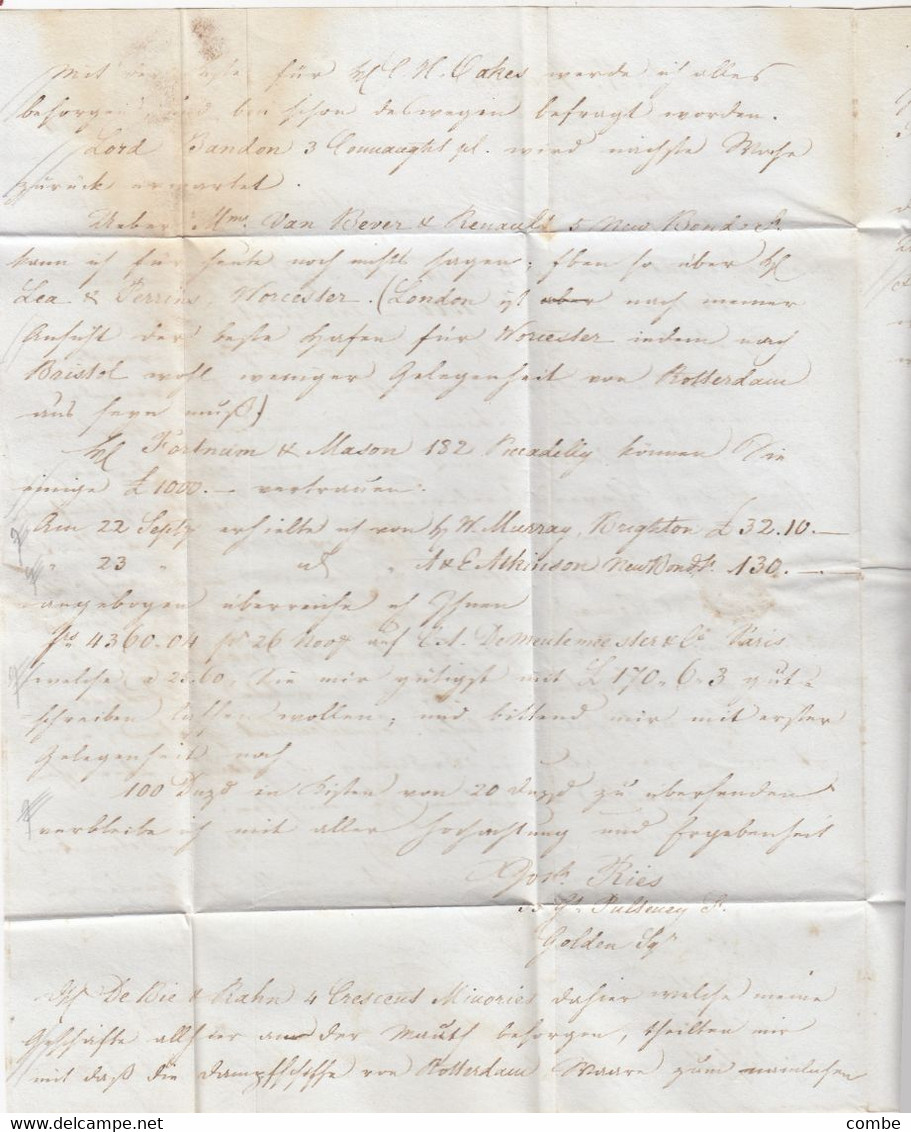 Mit der für H. Oakes werde ich alles
besorgen und bin schon deswegen befragt worden.
Lord Bandon 3 Connaught pl. wird nächste Woche
zurück erwartet.
Ueber Mms. Van Bever & Renault 5 New Bond St.
kann ich für heute noch nichts sagen; Eben so über
Lea & Perrins, Worcester. (London ist aber nach meiner
Ansicht der beste Hafen für Worcester indem nach
Bristol wohl weniger Gelegenheit von Rotterdam
aus seyn muß)
Fortnum & Mason 182 Piccadilly können Sie
einige £ 1000.– vertrauen.
Am 22 Septr erhielte ich von H W. Murray, Brighton £ 32.10.–
" 23 " " A & E Atkinson New Bond St. 130.–
angebogen überreiche ich Ihnen
frs 4360.04 26 auf Demeulemeester & Co. Paris
welche a 25.60, Sie mir gütigst mit £ 170-6-3 gut-
schreiben lassen wollen, und bittend mir mit erster
Gelegenheit noch
100 Duzd in Kisten von 20 Duzd zu übersenden
verbleibe ich mit aller Hochachtung und Ergebenheit
Josh. Ries
Gt. Pulteney St.
Golden Sqr
De Bie & Rahn 4 Crescent Minories dahier welche meine
Geschäfte allhier an der Mauth besorgen, theilten mir
mit daß die Dampfschiffe von Rotterdam Waare zum nämlichen
combe